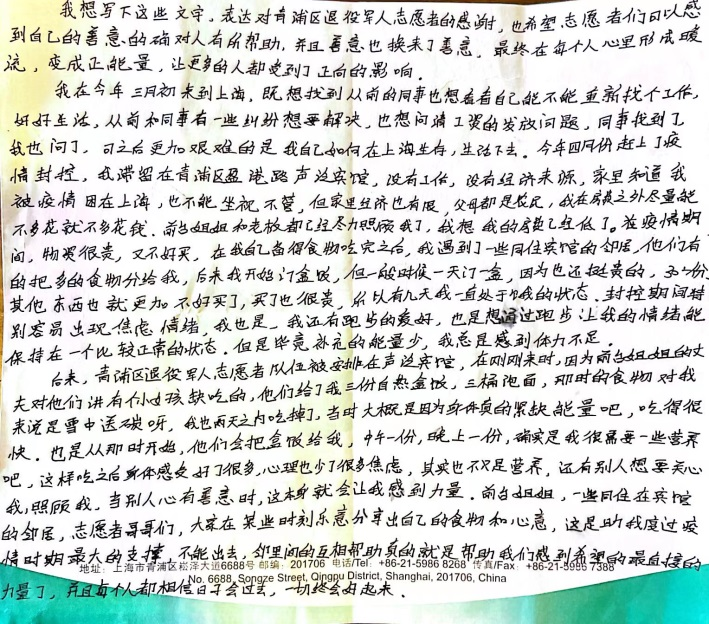 我想写下这些文字，表达对青浦区退役军人志愿者的感谢，也希望志愿者们可以感
到自己的善意的确对人有所帮助，并且善意也换来了善意，最终在每个人心里形成暖
流，变成正能量，让更多的人都受到了正向的影响。
我在今年三月初来到上海，既想找到从前的同事也想看看自己能不能重新找个工作，
好好生活，从前和同事有一些纠纷想要解决，也想问清工资的发放问题，同事找到了，
我也问了，可之后更加艰难的是我自己如何在上海生存，生活下去。今年四月份赶上了疫
情封控，我滞留在青浦区盈港路声达宾馆，没有工作，没有经济来源，家里知道我
被疫情困在上海，也不能坐视不管，但家里经济也有限，父母都是农民，我在房费之外尽量能
不多花就不多花钱。前台姐姐和老板都已经尽力照顾我了，我想我的房费已经低了。在疫情期
间，物资很贵，又不好买，在我自己备得食物吃完之后，我遇到了一些同住宾馆的邻居，他们有
的把多的食物分给我，后来我开始订盒饭，但一般时候一天订一盒，因为也还挺贵的，五一份
其他东西也就更加不好买了，买了也很贵，所以有几天我一直处于饿的状态。封控期间特
别容易出现焦虑情绪，我也是，我还有跑步的爱好，也是想通过跑步让我的情绪能
保持在一个比较正常的状态。但是毕竟补充的能量少，我总是感到体力不足。
后来，青浦区退役军人志愿者队伍被安排在声达宾馆，在刚刚来时，因为前台姐姐的丈
夫对他们讲有个小女孩缺吃的，他们给了我三份自热盒饭，三桶泡面，那时的食物对我
来说是雪中送碳呀，我也两天之内吃掉了，当时大概是因为身体真的紧缺能量吧，吃得很
快。也是从那时开始，他们会把盒饭给我，中午一份，晚上一份，确实是我很需要一些营养
吧，这样吃之后身体感受好了很多，心理也少了很多焦虑，其实也不只是营养，还有别人想要关心
我，照顾我，当别人心有善意时，这本身就会让我感到力量。前台姐姐，一些同住在宾馆
的邻居，志愿者哥哥们，大家在某些时刻乐意分享出自己的食物和心意，这是助我度过疫
情时期最大的支撑，不能出去，邻里间的互相帮助真的就是帮助我们感到希望的最直接的
地址：上海市青浦区崧泽大道6688号 邮编：201706 电话/Tel：+86-21-5986 8268 传真/Fax：+86-21-5986 7388
No. 6688, Songze Street, Qingpu District, Shanghai, 201706, China
力量了，并且每个人都相信日子会过去，一切终会好起来。